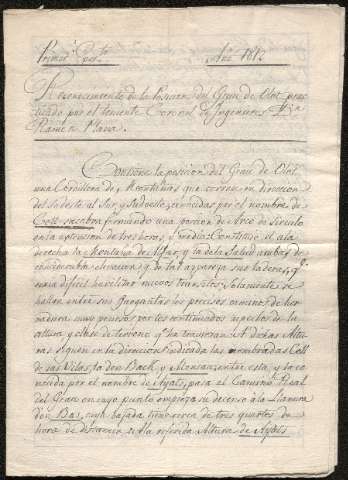 Año 1812
Reconocimiento de la Posicion del Grau de Olot, prac
ticado por el teniente Coronel de Ingenieros
Contiene la posicion del Grau de Olot
una Cordillera de Montañas que corren en direccion
del Sudeste al Sur y Sudoeste, conocidas por el nombre de
formando una porcion de Arco de Circulo
en la extension de tres horas, y media. Constituye a la
derecha la Montaña del y la de la Salud ambas de
considerable elevacion, y de tal aspereza sus laderas, q.e
seria dificil havilitar nuevos transitos. Solamente se
hallan entre sus gargantas los precisos caminos de her
radura muy penosos por los continuados
altura y clase de terreno q.e las A dichas Altu
ras siguen en la direccion indicada las nombradas Coll
de sas Vilas, la den Bach, y esta, y la co
nocida por el nombre de Ayats, pasa el Camino Real
del Grau en cuyo punto empieza su decenso a la Llanura
den Bas, cuya bajada tiene cerca de tres quartos de
hora de distancia a la referida Altura de Ayats